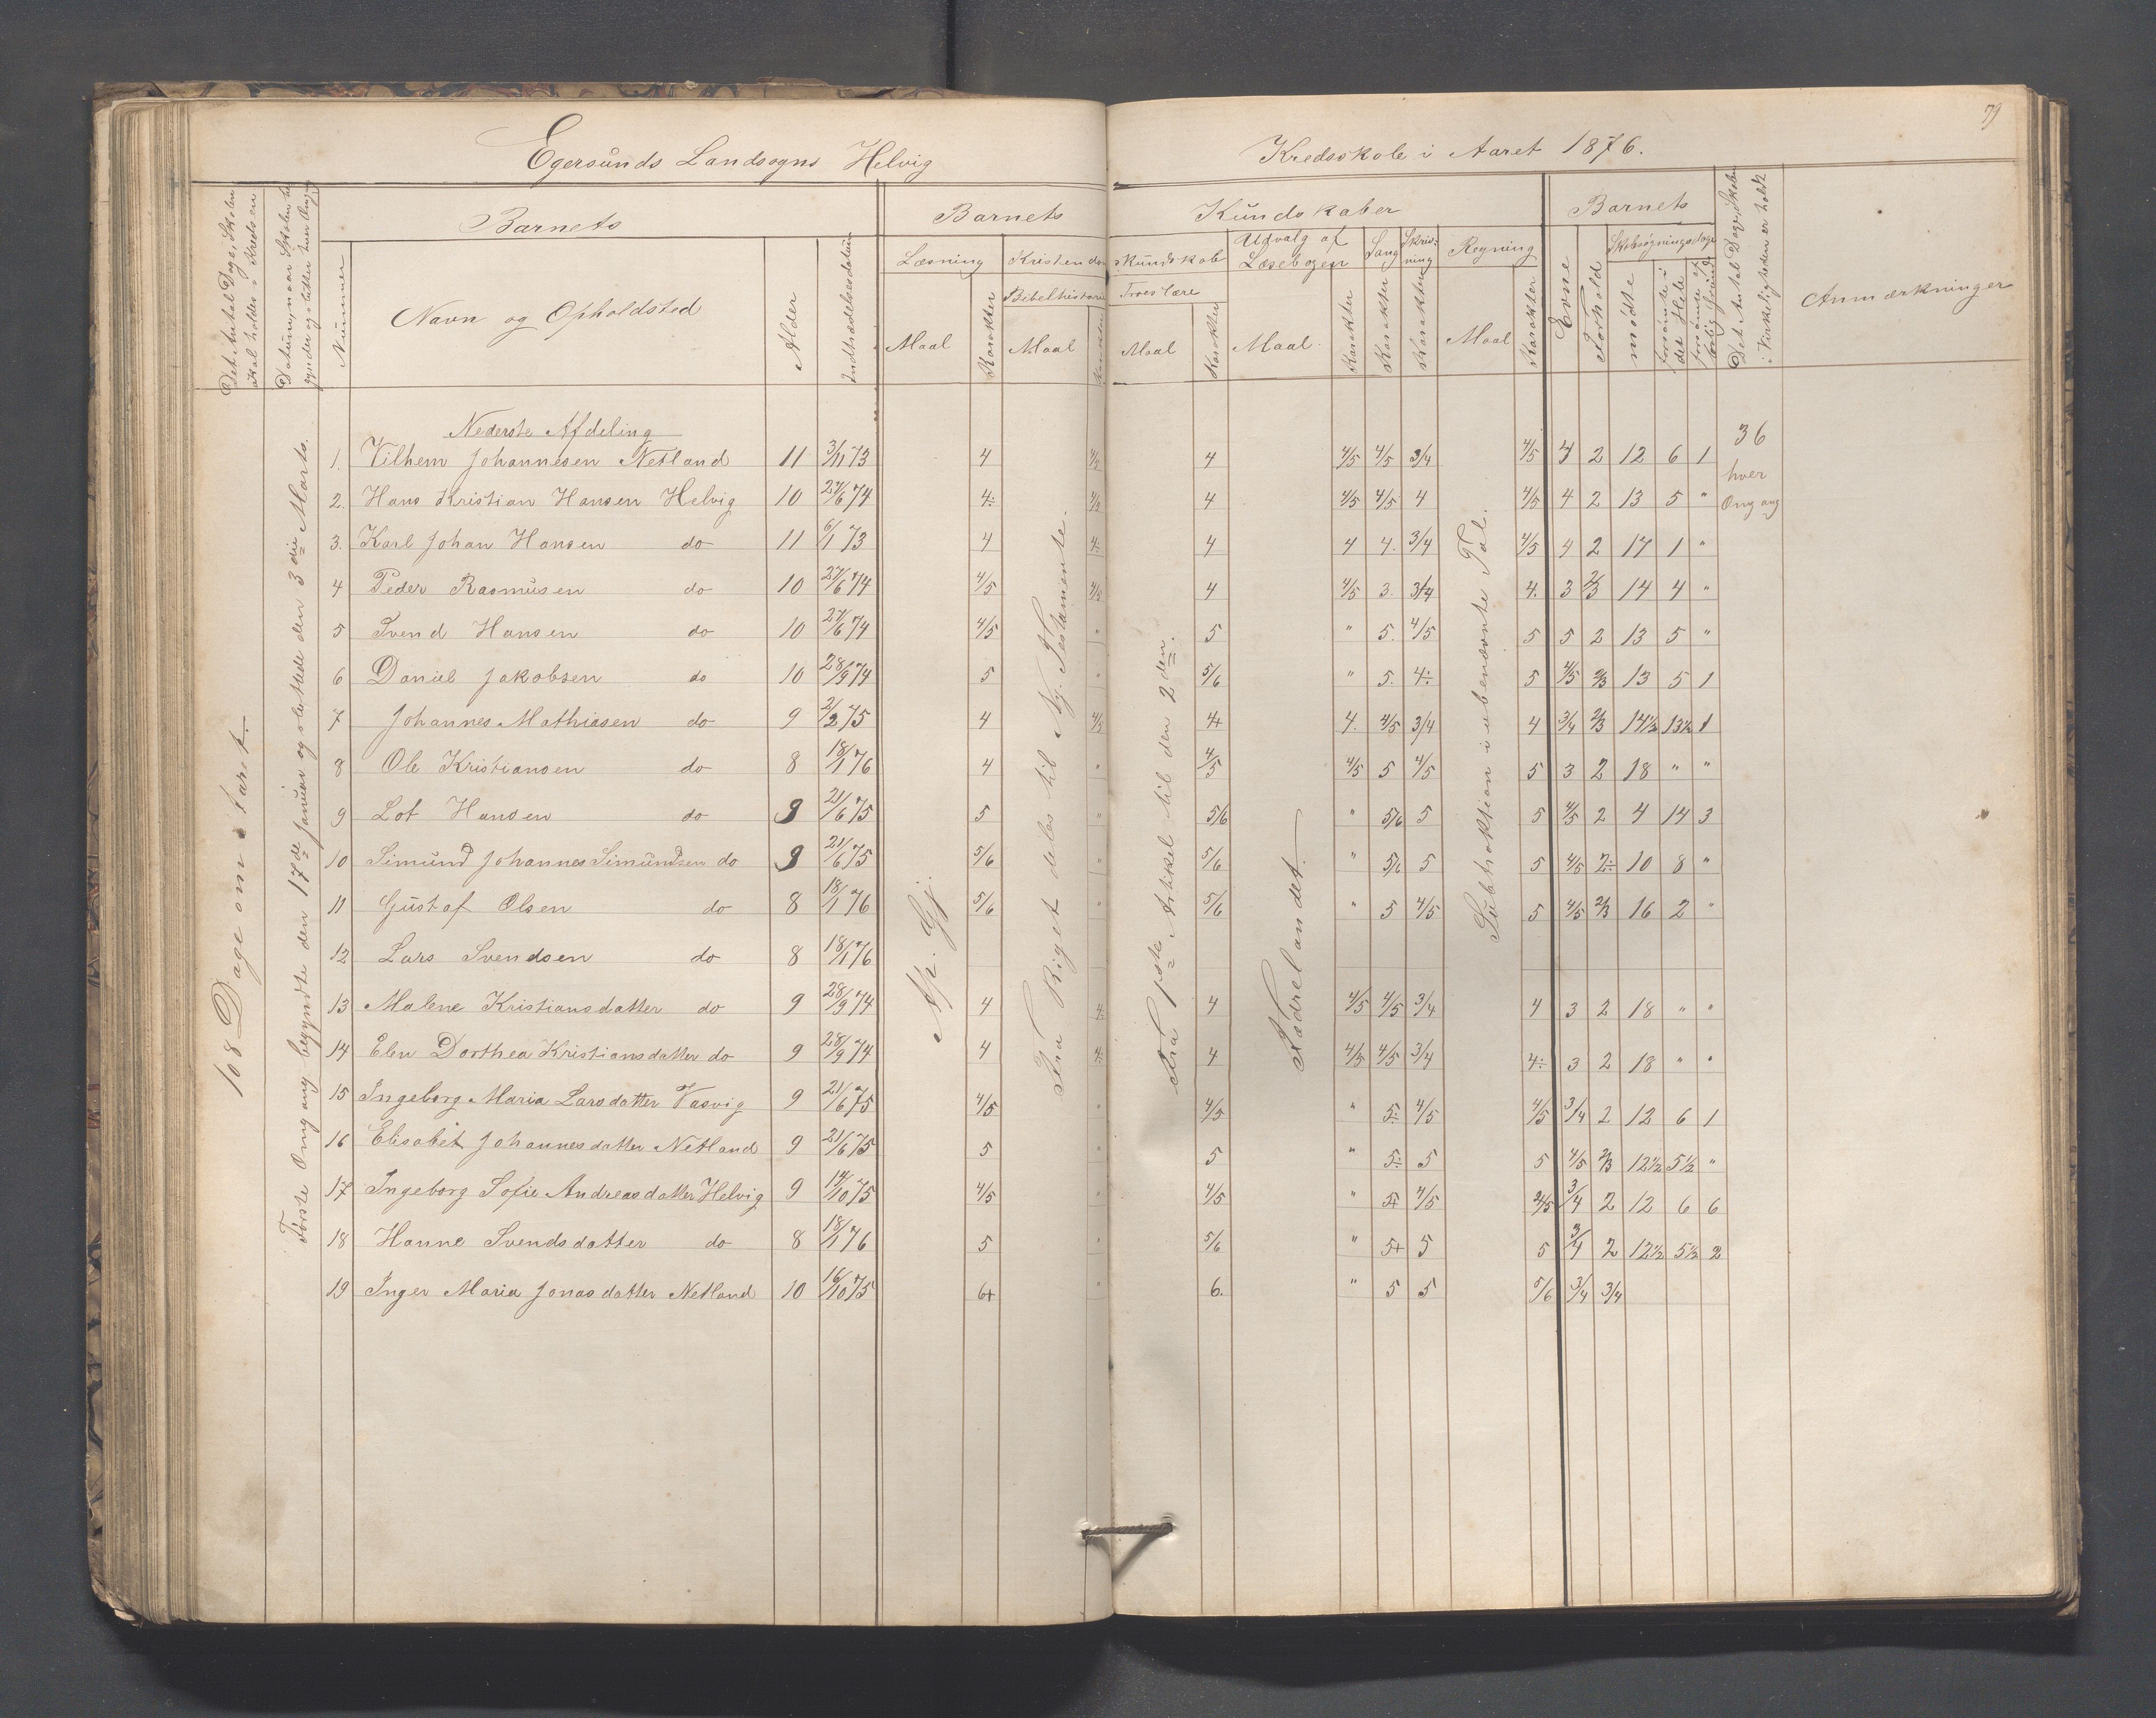 79
Egersunds Landsogns Helvig Kredsskole i Aaret 1876.
Det Antal Dage, Skolen skal holdes i Kredsen
Datum, naar Skolen begynder og slutter hver Omgang
Barnets
Nummer
Navn og Opholdsted
Alder
Indtrædelsesdatum
Barnets Kundskaber
Læsning
Maal
Karakter
Kristendomskundskab
Bibelhistorie
Maal
Karakter
Troeslære
Maal
Karakter
Udvalg af Læsebogen
Maal
Karakter
Sang
Karakter
Skrivning
Karakter
Regning
Maal
Karakter
Barnets
Evne
Forhold
Skolesøgningsdage
mødte
forsømte i det Hele
forsømte af lovlig Grund
Det Antal Dage, Skolen i Virkeligheden er holdt
Anmærkninger
108 Dage om Aaret.
Første Omgang begyndte den 17de Januar og sluttede den 3die Marts.
Nederste Afdeling
1. Vilhem Johannesen Netland 11 3/11 73 4 4/5 4 4/5 4/5 3/4 4/5 4 2 12 6 1
2. Hans Kristian Hansen Helvig 10 27/6 74 4÷ 4/5 4 4/5 4/5 4 4/5 4 2 13 5 "
3. Karl Johan Hansen do 11 6/1 73 4 4÷ 4 4 4. 3/4 4/5 4 2 17 1 "
4 Peder Rasmusen do 10 27/6 74 4/5 4/5 4 4/5 3. 3/4 4. 3 2/3 14 4 "
5 Svend Hansen do 10 27/6 74 4/5 " 5 " 5. 4/5 5 5 2 13 5 "
6 Daniel Jakobsen do 10 28/9 74 5 " 5/6 " 5. 4÷ 5 4/5 2/3 13 5 1
7 Johannes Mathiasen do 9 2/2 75 4 4/5 4+ 4. 4/5 3/4 4 3/4 2/3 14½ 13½ 1
8 Ole Kristiansen do 8 18/1 76 4 " 4/5 4/5 5 4/5 5 3 2 18 " "
9 Lot Hansen do 9 21/6 75 5 " 5/6 " 5/6 5 5 4/5 2 4 14 3
10 Simund Johannes Simundsen do 9 21/6 75 5/6 " 5/6 " 5/6 5 5 4/5 2÷ 10 8 "
11 Gustaf Olsen do 8 18/1 76 5/6 " 5/6 " 5 4/5 5 4/5 2/3 16 2 "
12 Lars Svendsen do 8 18/1 76
13 Malene Kristiansdatter do 9 28/9 74 4 4÷ 4 4/5 4/5 3/4 4 3 2 18 " "
14 Elen Dorthea Kristiansdatter do 9 28/9 74 4 4÷ 4 4/5 4/5 3/4 4÷ 3 2 18 " "
15 Ingeborg Maria Larsdatter Vasvig 9 21/6 75 4/5 " 4/5 " 5÷ 4/5 4/5 3/4 2 12 6 1
16 Elisabet Johannesdatter Netland 9 21/6 75 5 " 5 " 5÷ 5 5 4/5 2/3 12½ 5½ "
17 Ingeborg Sofie Andreasdatter Helvig 9 14/10 75 4/5 " 4/5 " 5+ 4/5 4/5 3/4 2 12 6 6
18 Hanne Svendsdatter do 8 18/1 76 5 " 5/6 " 5+ 5 5 3/4 2 12½ 5½ 2
19 Inger Maria Jonasdatter Netland 10 16/10 75 6+ " 6. " 5 5 5/6 3/4 3/4
Fra Riget deles til Ny. Testamente.
Fra første Artikel til den 2den.
Fædrelandet.
Subtraktion i ubenævnte Tal.
36
hver
Omgang